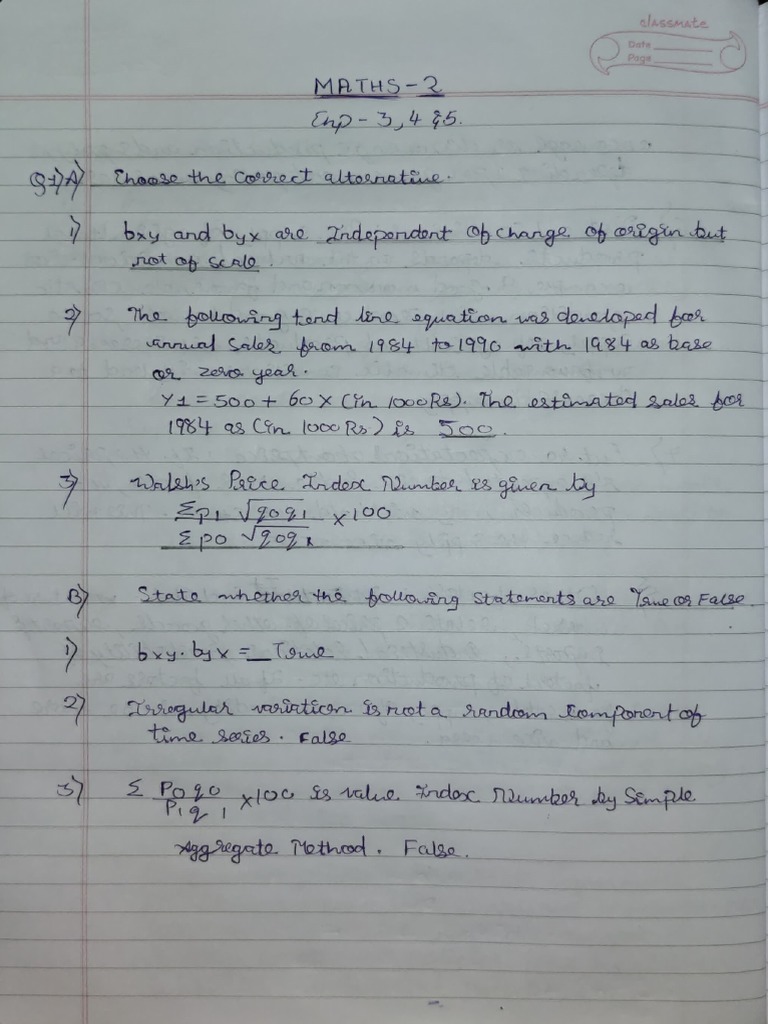 classmate
Date
Page
MATHS-2
Exp - 3, 4 & 5.
Q1)A) Choose the correct alternative.
1) bxy and byx are Independent of change of origin but
not of scale.
2) The following tend line equation was developed for
annual sales from 1984 to 1990 with 1984 as base
or zero year.
Y1 = 500 + 60 X (in 1000 Rs). The estimated sales for
1984 as (in 1000 Rs) is 500.
3) Walsh's Price Index Number is given by
Σp1 √q0q1 × 100
Σp0 √q0q1
B) State whether the following statements are True or False.
1) bxy. byx = True
2) Irregular variation is not a random component of
time series. False
3) Σ P0q0 × 100 is value Index Number by Simple
P1q1
Aggregate Method. False.